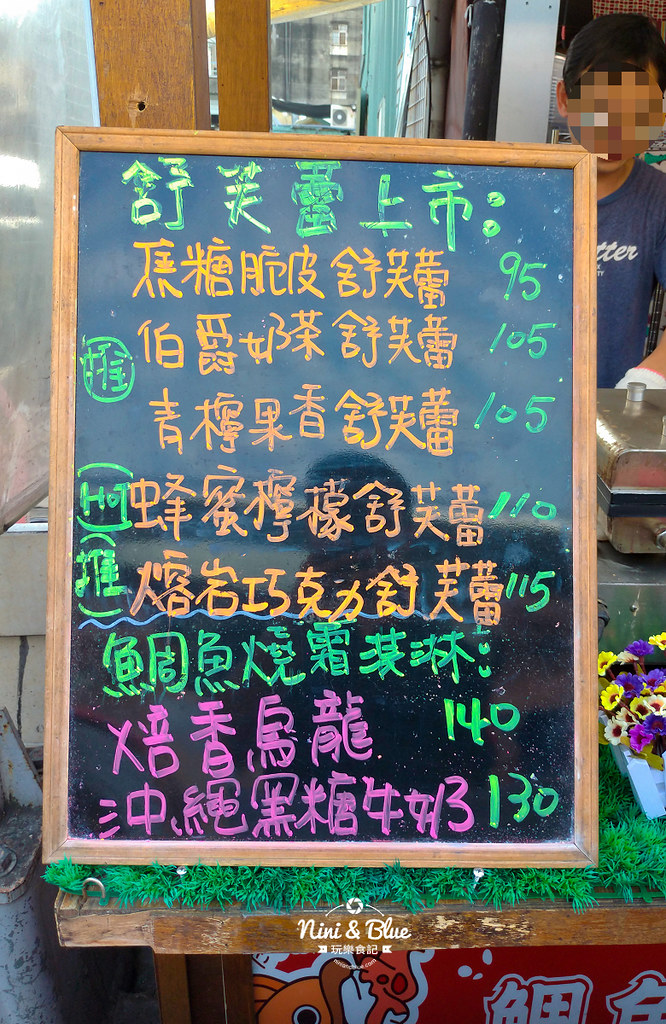 舒芙蕾上市:
蕉糖脆皮舒芙蕾 95
推 伯爵奶茶舒芙蕾 105
青檸果香舒芙蕾 105
(Hot) 蜂蜜檸檬舒芙蕾 110
(推) 熔岩巧克力舒芙蕾 115
鯛魚燒霜淇淋:
焙香烏龍 140
沖繩黑糖牛奶 130
Nini & Blue
玩樂食記
niniandblue.com
鯛魚